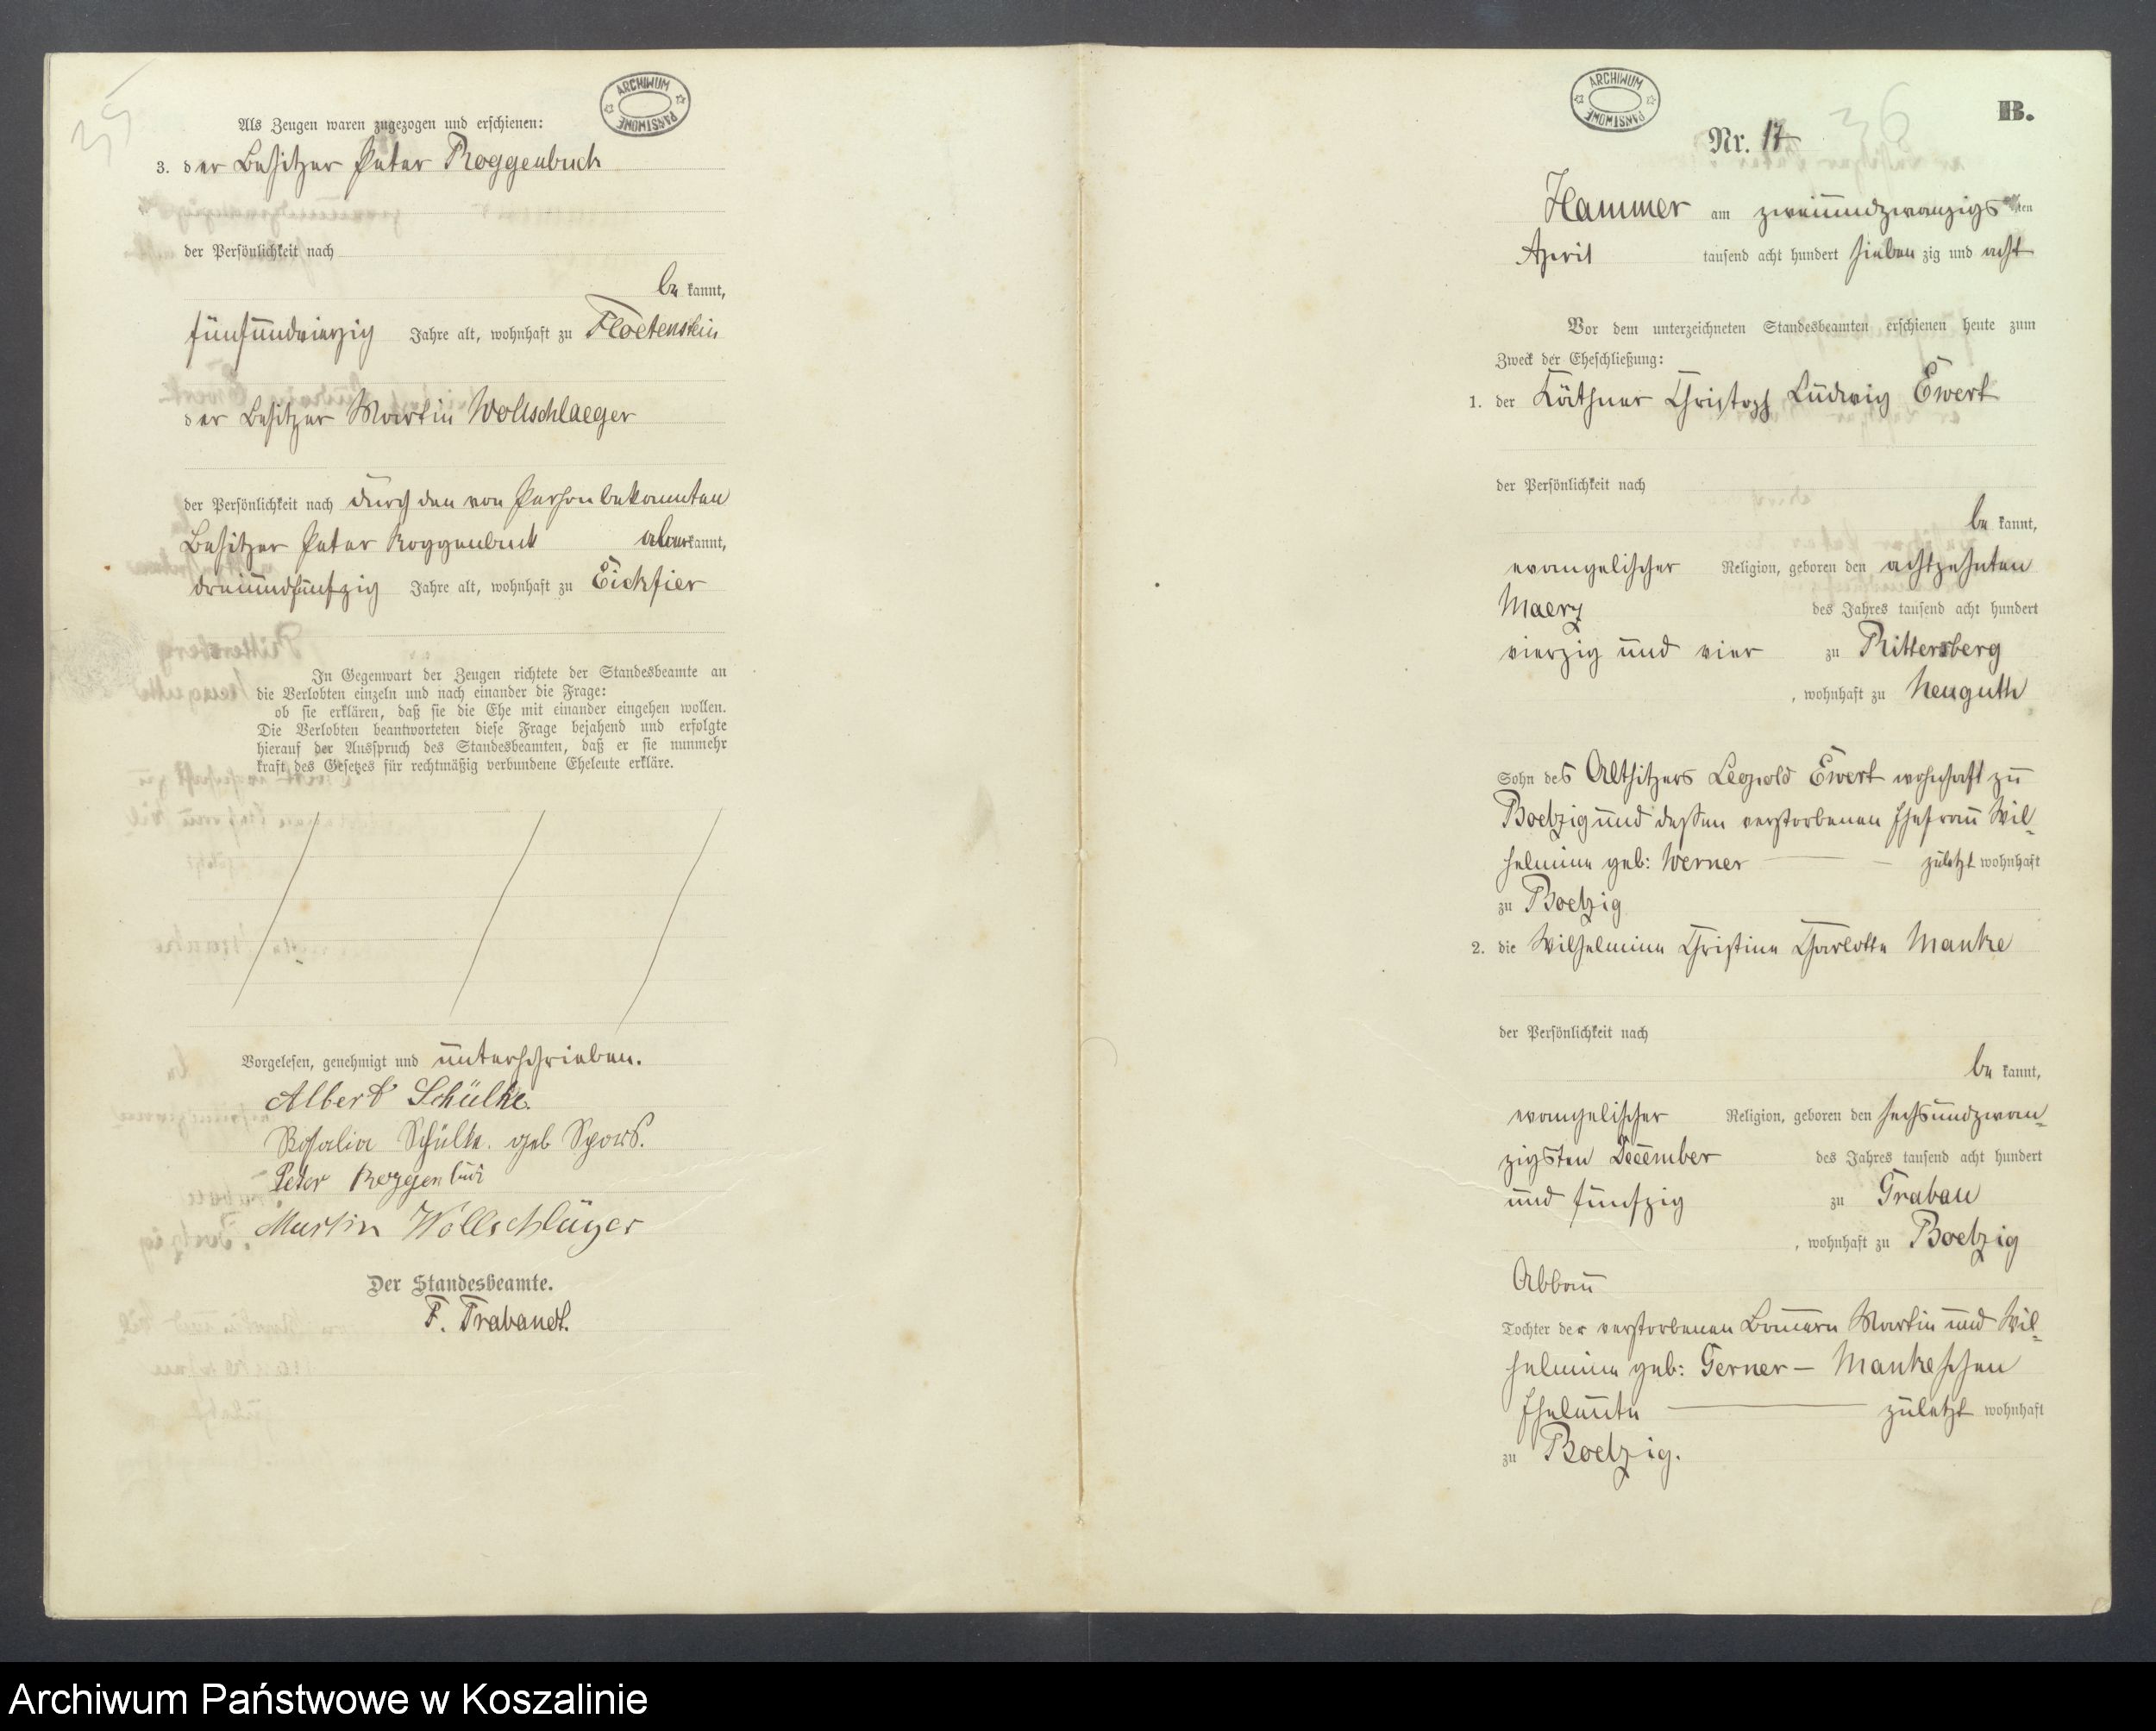 35
ARCHIWUM
PAŃSTWOWE
Als Zeugen waren zugezogen und erschienen:
3. der Besitzer Peter Roggenbuck
der Persönlichkeit nach
be kannt,
fünfundvierzig Jahre alt, wohnhaft zu Floetenstein
der Besitzer Martin Wollschlaeger
der Persönlichkeit nach durch den von Person bekannten
Besitzer Peter Roggenbuck kannt,
dreiundfünfzig Jahre alt, wohnhaft zu Eickfier
In Gegenwart der Zeugen richtete der Standesbeamte an
die Verlobten einzeln und nach einander die Frage:
ob sie erklären, daß sie die Ehe mit einander eingehen wollen.
Die Verlobten beantworteten diese Frage bejahend und erfolgte
hierauf der Ausspruch des Standesbeamten, daß er sie nunmehr
kraft des Gesetzes für rechtmäßig verbundene Eheleute erkläre.
Vorgelesen, genehmigt und unterschrieben.
Albert Schülke.
Rosalia Schülke. geb Spors.
Peter Roggenbuck
Martin Wollschläger
Der Standesbeamte.
F. Trabandt.
ARCHIWUM
PAŃSTWOWE
36
B.
Nr. 17
Hammer am zweiundzwanzigsten
April tausend acht hundert sieben zig und acht
Vor dem unterzeichneten Standesbeamten erschienen heute zum
Zweck der Eheschließung:
1. der Käthner Christoph Ludwig Ewert
der Persönlichkeit nach
be kannt,
evangelischer Religion, geboren den achtzehnten
Maerz des Jahres tausend acht hundert
vierzig und vier zu Rittersberg
, wohnhaft zu Neuguth
Sohn des Altsitzers Leopold Ewert wohnhaft zu
Boelzig und dessen verstorbenen Ehefrau Wil-
helmine geb: Werner zuletzt wohnhaft
zu Boelzig
2. die Wilhelmine Christine Charlotte Manke
der Persönlichkeit nach
be kannt,
evangelischer Religion, geboren den sechsundzwan-
zigsten December des Jahres tausend acht hundert
und fünfzig zu Grabau
, wohnhaft zu Boelzig
Abbau
Tochter der verstorbenen Bauern Martin und Wil-
helmine geb: Gerner - Mankeschen
Eheleute zuletzt wohnhaft
zu Boelzig.
Archiwum Państwowe w Koszalinie